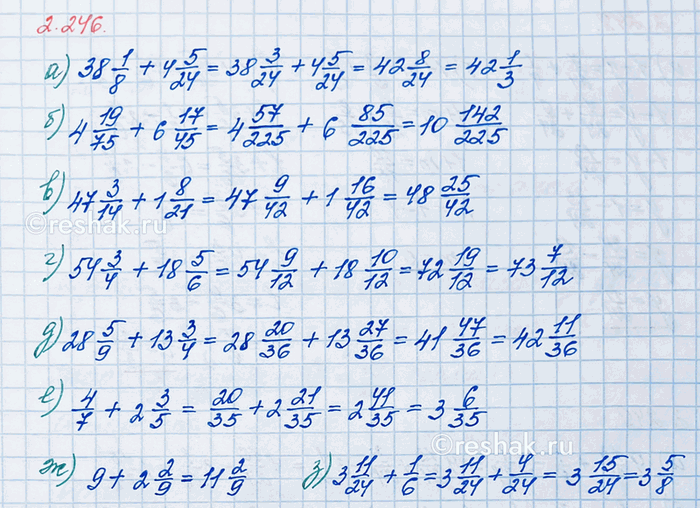 2.246.
а) 38 1/8 + 4 5/24 = 38 3/24 + 4 5/24 = 42 8/24 = 42 1/3
б) 4 19/75 + 6 17/45 = 4 57/225 + 6 85/225 = 10 142/225
в) 47 3/14 + 1 8/21 = 47 9/42 + 1 16/42 = 48 25/42
©reshak.ru
г) 54 3/4 + 18 5/6 = 54 9/12 + 18 10/12 = 72 19/12 = 73 7/12
д) 28 5/9 + 13 3/4 = 28 20/36 + 13 27/36 = 41 47/36 = 42 11/36
е) 4/7 + 2 3/5 = 20/35 + 2 21/35 = 2 41/35 = 3 6/35
©reshak.ru
ж) 9 + 2 2/9 = 11 2/9 з) 3 11/24 + 1/6 = 3 11/24 + 4/24 = 3 15/24 = 3 5/8